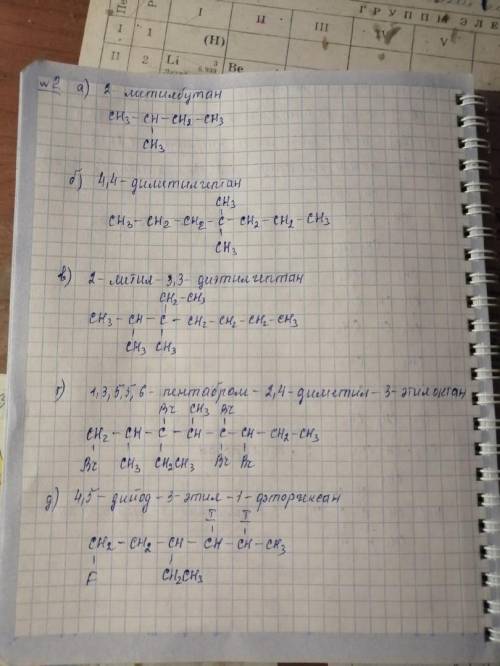 Г Р У П П Ы Э Л Е
I II III IV V
(H)
I 1
II 2 Li 3 Be
№2 а) 2-метилбутан
CH3 - CH - CH2 - CH3
CH3
б) 4,4-диметилгептан
CH3
CH3 - CH2 - CH2 - C - CH2 - CH2 - CH3
CH3
в) 2-метил-3,3-диэтилгептан
CH2-CH3
CH3 - CH - C - CH2 - CH2 - CH2 - CH3
CH3 CH3
г) 1,3,5,5,6-пентабром-2,4-диметил-3-этилоктан
Br CH3 Br
CH2 - CH - C - CH - C - CH - CH2 - CH3
Br CH3 CH2CH3 Br Br
д) 4,5-дийод-3-этил-1-фторгексан
I I
CH2 - CH2 - CH - CH - CH - CH3
F CH2CH3